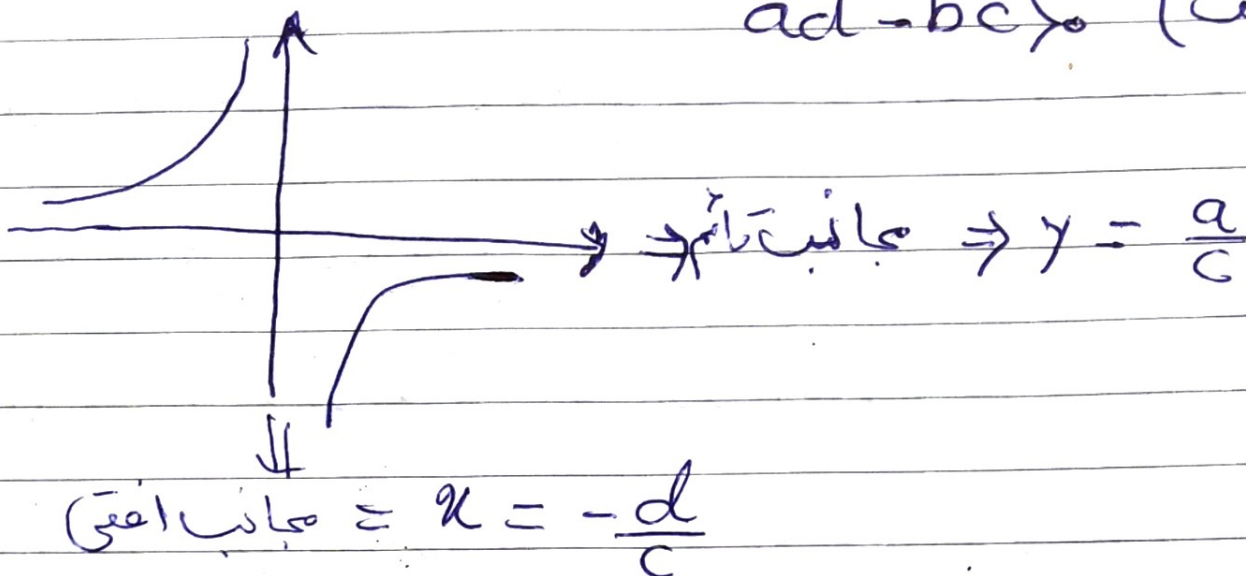 ad - bc > 0 (
مجانب قائم ⇒ y = a/c
مجانب افقی = x = -d/c